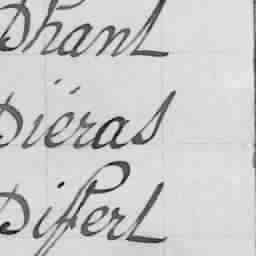 Dhant
Diéras
Differt